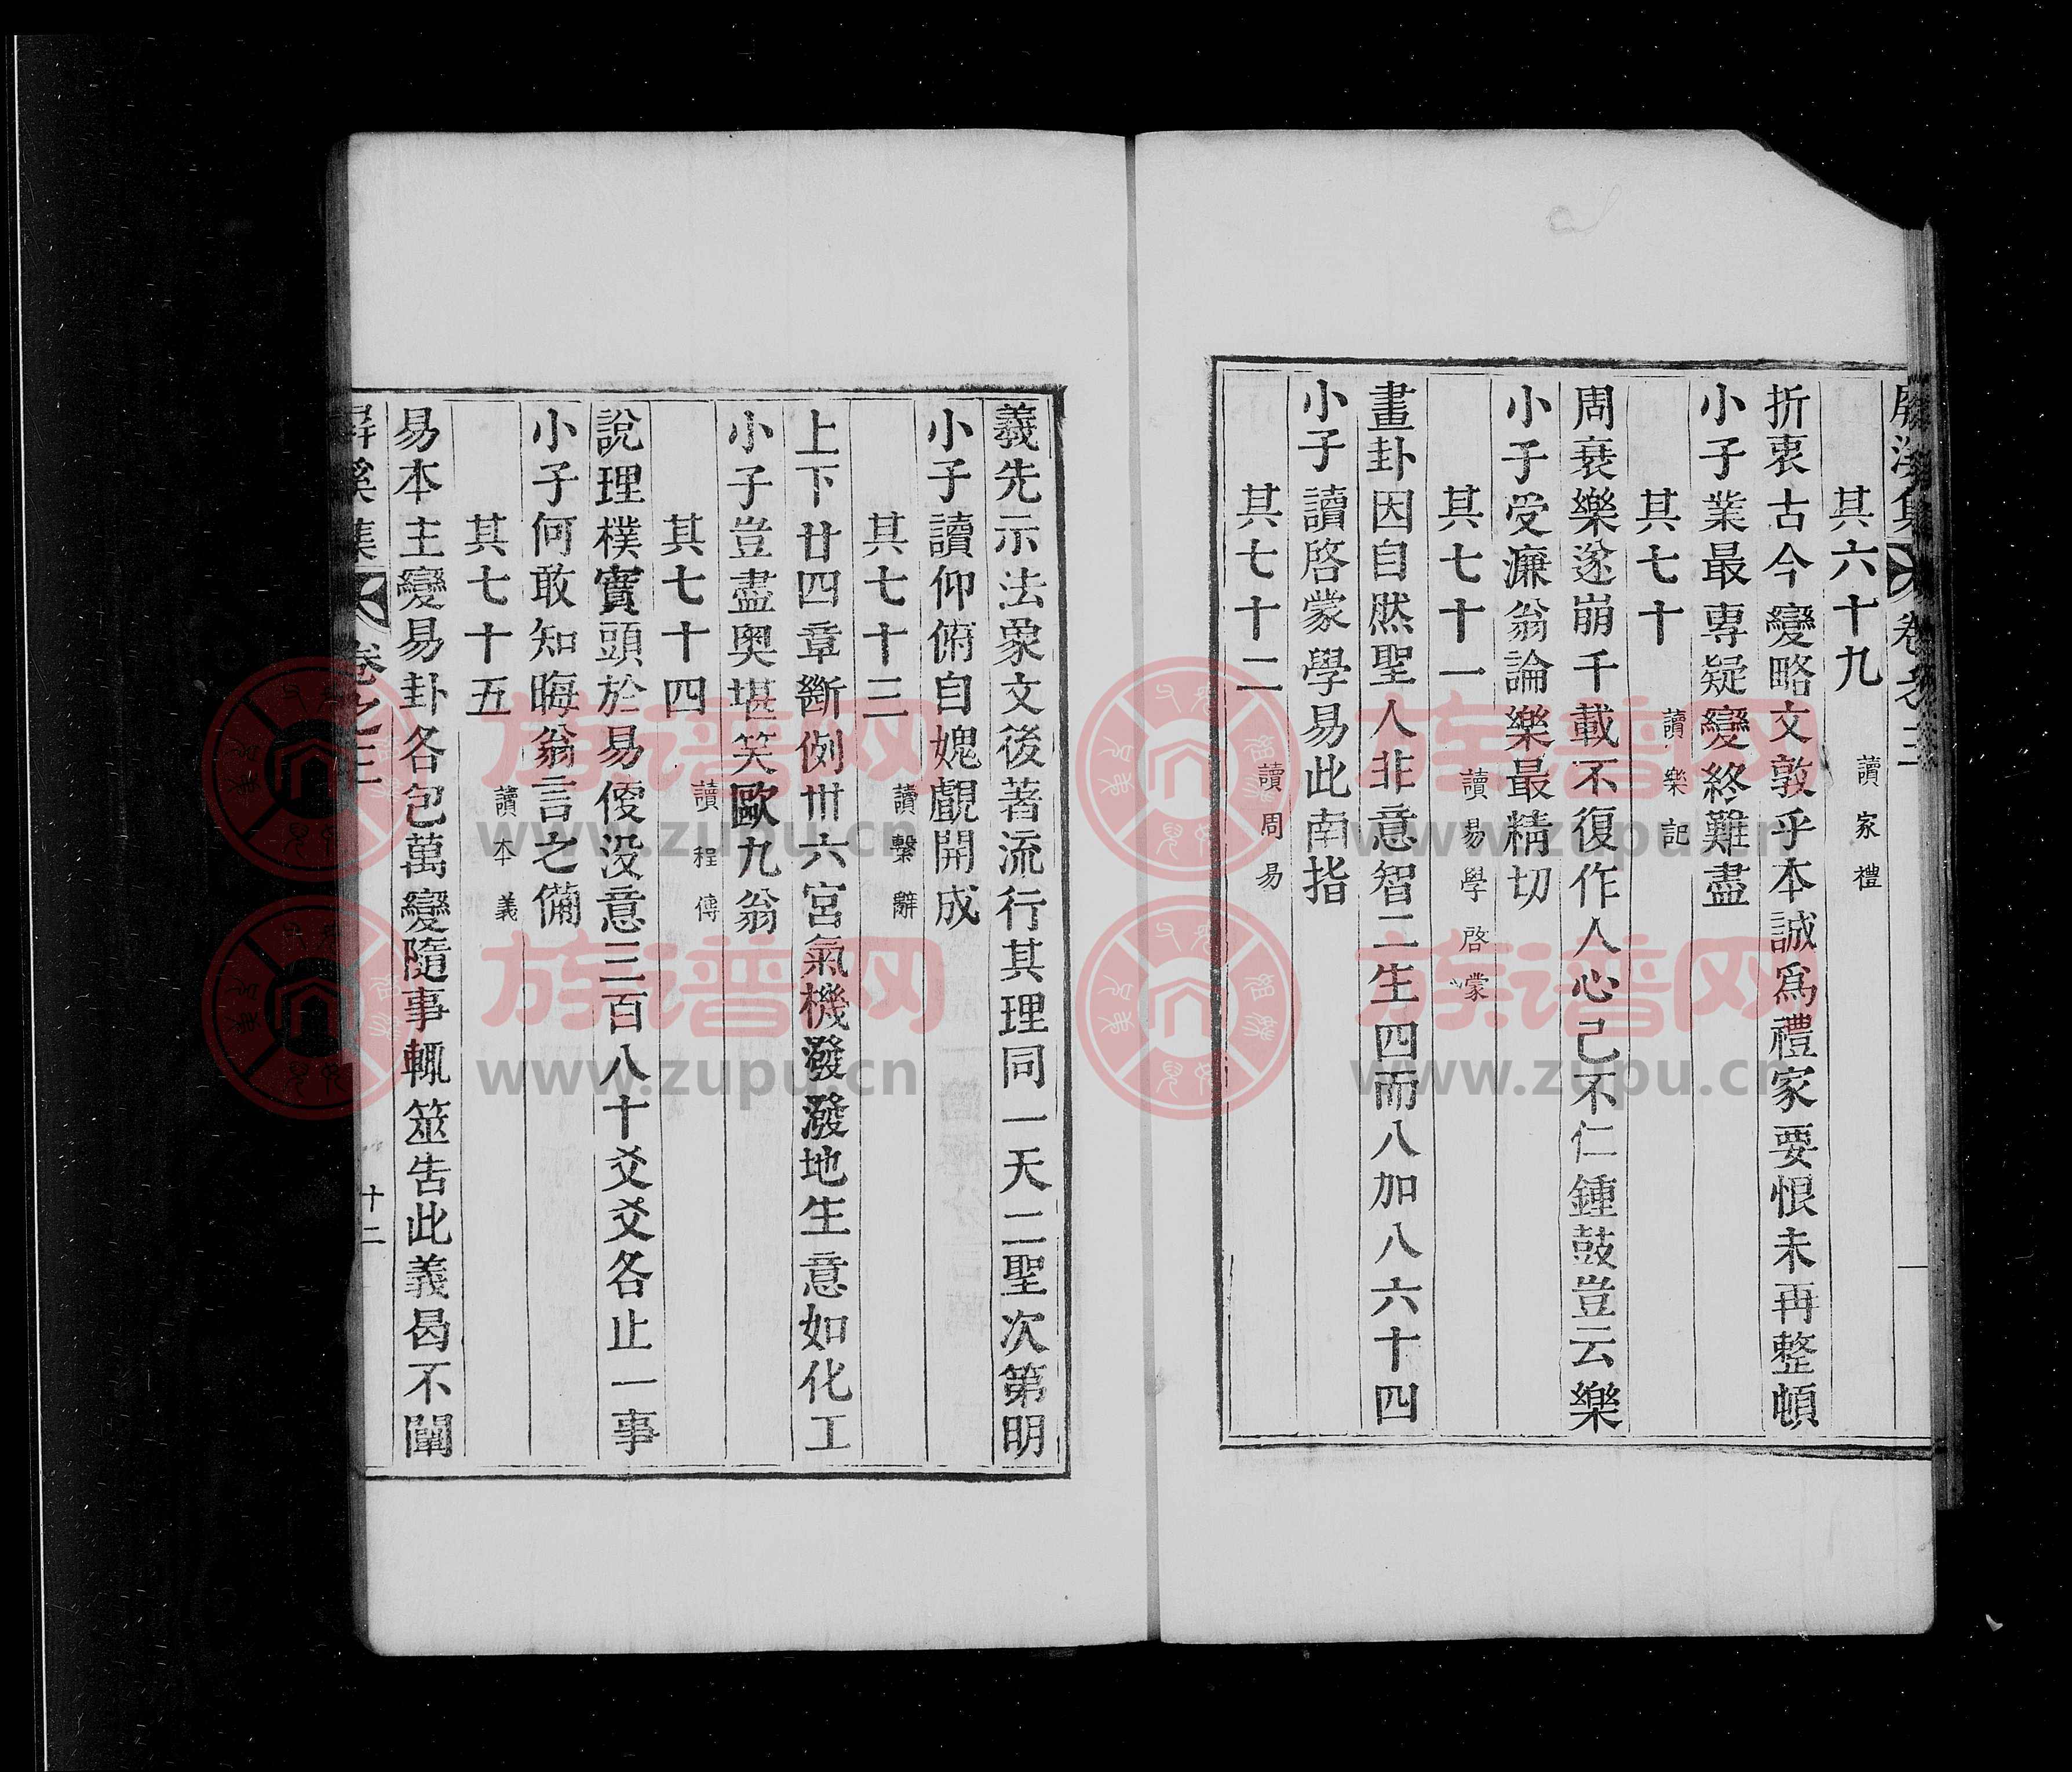 屏溪集 卷之三
其六十九 讀家禮
折衷古今變略文敦乎本誠爲禮家要恨未再整頓
小子業最專疑變終難盡
其七十 讀樂記
周衰樂遂崩千載不復作人心己不仁鍾鼓豈云樂
小子受濂翁論樂最精切
其七十一 讀易學啓蒙
畫卦因自然聖人非意智二生四而八加八六十四
小子讀啓蒙學易此南指
其七十二 讀周易
羲先示法象文後著流行其理同一天二聖次第明
小子讀仰俯自媿覰開成
其七十三 讀繫辭
上下廿四章斷例卅六宮氣機潑潑地生意如化工
小子豈盡奧堪笑歐九翁
其七十四 讀程傳
說理樸實頭於易傻没意三百八十爻爻各止一事
小子何敢知晦翁言之備
其七十五 讀本義
易本主變易卦各包萬變隨事輒筮告此義曷不闡
屏溪集 卷之三 十二
族谱网
www.zupu.cn
族谱网
www.zupu.cn
族谱网
www.zupu.cn
族谱网
www.zupu.cn